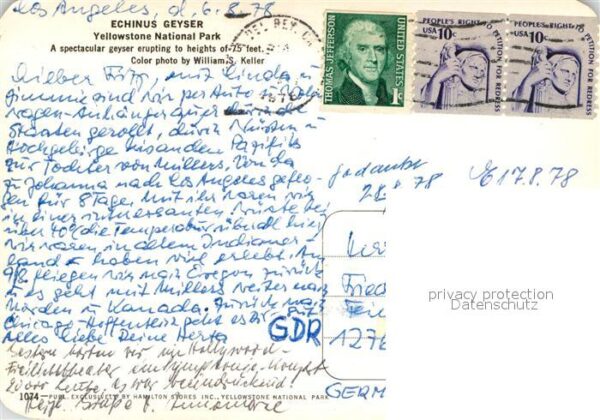 Los Angeles, d. 6.8.78
ECHINUS GEYSER
Yellowstone National Park
A spectacular geyser erupting to heights of 75 feet.
Color photo by William S. Keller
Lieber Fritz, mit Linda u
Jimmie sind wir per Auto u
wagen-Anhänger quer durch die
Staaten gerollt, durch Wüsten u
Hochgebirge bis an den Pazifik
zur Tochter von Müllers. Von da
zu Johanna nach Los Angeles geflo-
gen für 8 Tage. Mit ihr waren wir
in einer interessanten Wüste bei
über 40° die Temperatur überall hier
wir waren in altem Indianer-
land u haben viel erlebt. Am
9/8. fliegen wir nach Oregon zurück
u es geht mit Müllers weiter nach
Norden u Kanada. Zurück nach
Chicago. Hoffentlich geht es Dir gut
Alles Liebe Deine Herta
Gestern hörten wir im Hollywood-
Freilichttheater ein Symphonie-Konzert
20000 Leute, es war beeindruckend!
Herzl. Grüße v. Annemarie
1074—PUBL. EXCLUSIVELY BY HAMILTON STORES INC., YELLOWSTONE NATIONAL PARK
DEL REY, CA
THOMAS JEFFERSON
UNITED STATES
1c
PEOPLE'S RIGHT
TO PETITION
FOR REDRESS
USA 10c
PEOPLE'S RIGHT
TO PETITION
FOR REDRESS
USA 10c
28.8 78
E 17.8.78
Fried
1276
GDR
GERM
privacy protection
Datenschutz